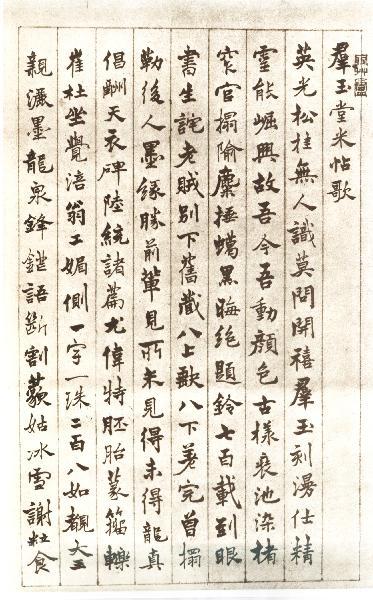 羣玉堂米帖歌
英光松桂無人識莫問開禧羣玉刻漫仕精
靈能崛興故吾今吾動顏色古樣裝池染楮
窄官搨隃麋捶蠟黑晦絶題鈴七百載到眼
書生詫老賊别下舊藏八上歠八下差完首搨
勒後人墨緣勝前輩見所未見得未得龍真
倡酬天衣碑陸統諸篇尤偉特胚胎篆籀轢
崔杜坐覺涪翁工媚側一字一珠二百八如覩大王
親灑墨龍泉鋒鍔語斷割藐姑冰雪謝粒食